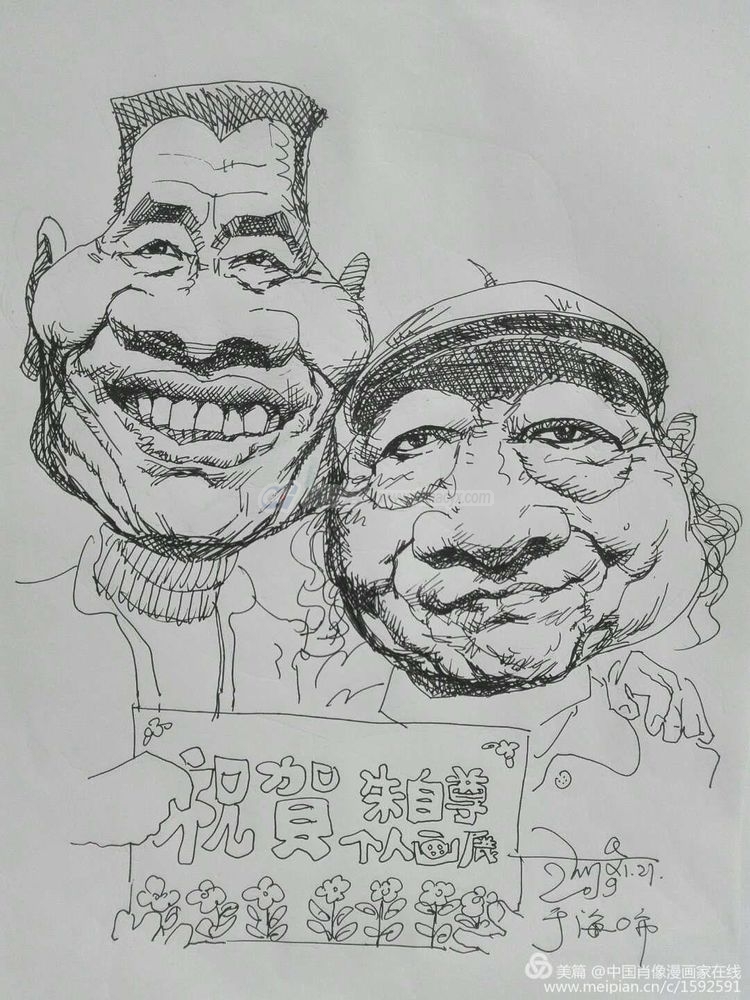 祝賀 朱自尊
个人画展
2009.1.21.
于海口市
美篇 @中国肖像漫画家在线
www.meipian.cn/c/1592591